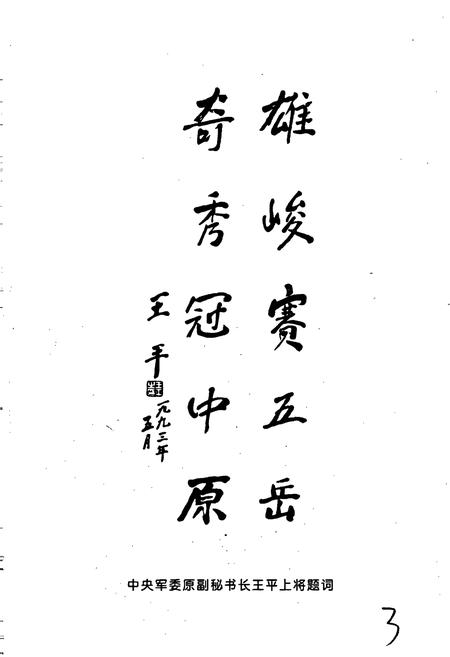 雄峻赛五岳
奇秀冠中原
王平
一九九三年
五月
中央军委原副秘书长王平上将题词
3